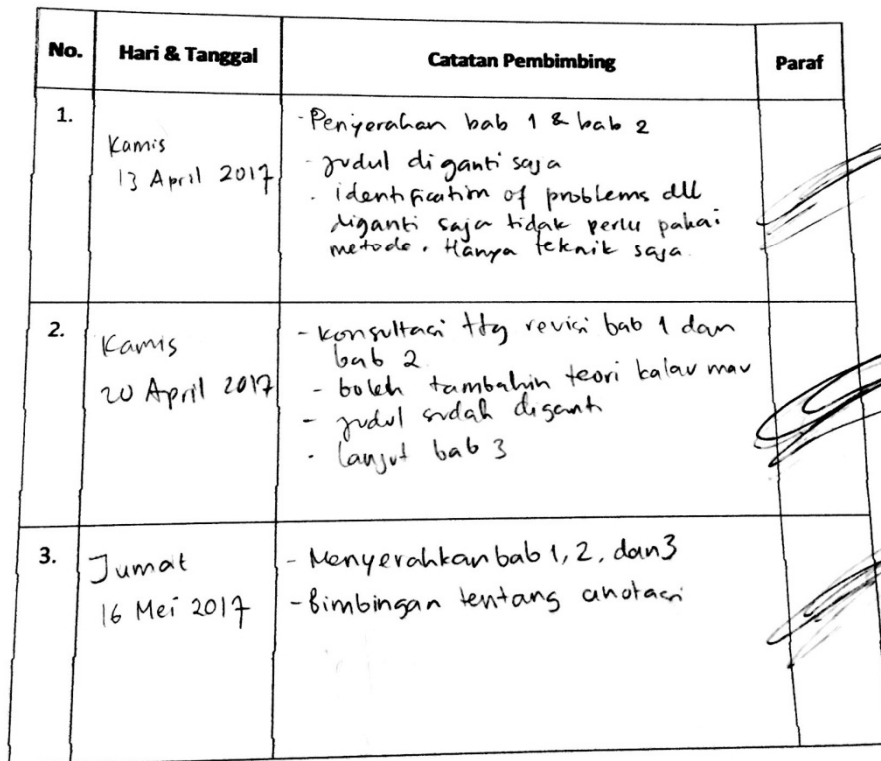 No. Hari & Tanggal Catatan Pembimbing Paraf
1.
Kamis
13 April 2017
- Penyerahan bab 1 & bab 2
- judul diganti saja
- identification of problems dll
diganti saja tidak perlu pakai
metode. Hanya teknik saja.
2.
Kamis
20 April 2017
- Konsultasi ttg revisi bab 1 dan
bab 2
- boleh tambahin teori kalau mau
- judul sudah diganti
- lanjut bab 3
3.
Jumat
16 Mei 2017
- Menyerahkan bab 1, 2, dan 3
- Bimbingan tentang anotasi